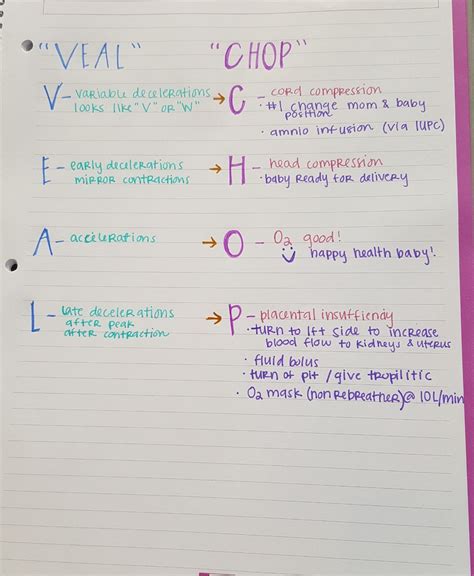 "VEAL" "CHOP"
V - variable decelerations → C - cord compression
looks like "V" or "W" • #1 change mom & baby
position
• amnio infusion (via IUPC)
E - early decelerations → H - head compression
mirror contractions • baby ready for delivery
A - accelerations → O - O2 good!
happy health baby!
L - late decelerations → P - placental insufficiency
after peak • turn to lft side to increase
after contraction blood flow to kidneys & uterus
• fluid bolus
• turn of pit / give tropilitic
• O2 mask (non rebreather) @ 10L/min